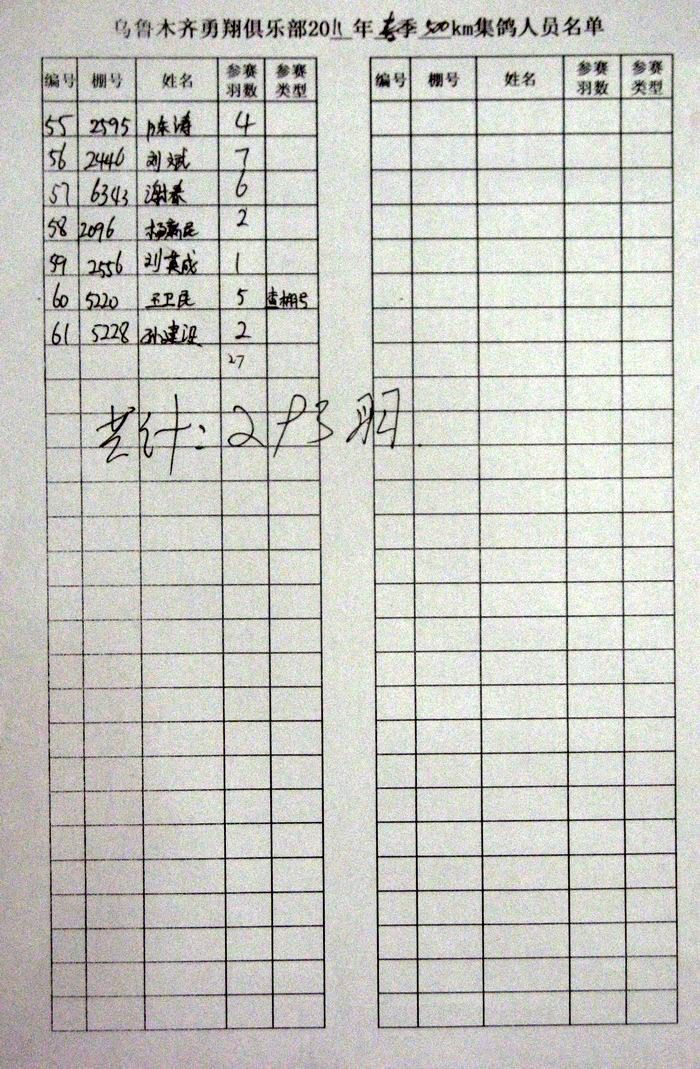 乌鲁木齐勇翔俱乐部2011年春季500km集鸽人员名单
编号 棚号 姓名 参赛羽数 参赛类型
编号 棚号 姓名 参赛羽数 参赛类型
55 2595 陈涛 4
56 2446 刘斌 7
57 6343 谢春 6
58 2096 杨新民 2
59 2556 刘英成 1
60 5220 王卫民 5 查棚号
61 5228 孙建设 2
27
共计：293羽.